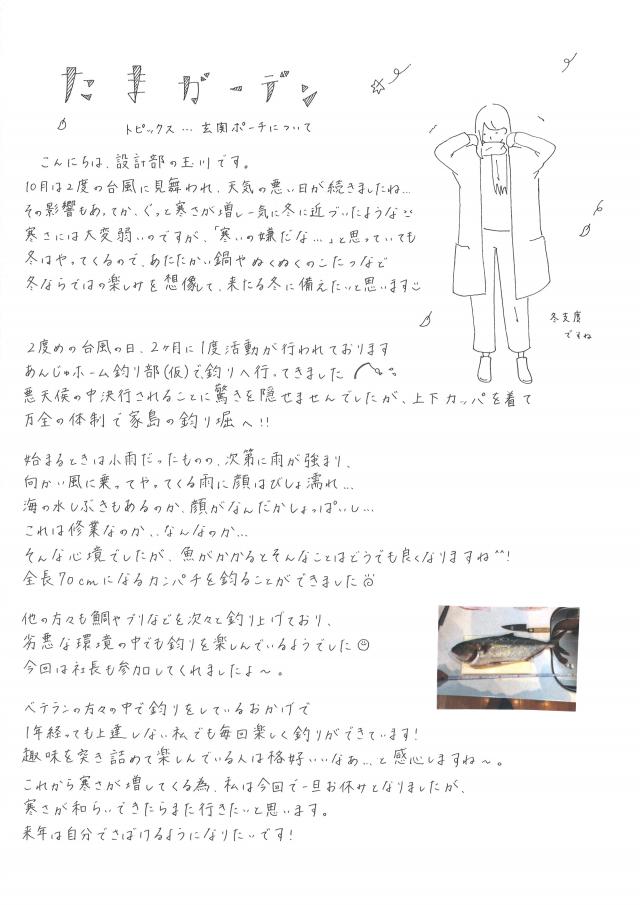 たまガーデン
トピックス…玄関ポーチについて
こんにちは、設計部の玉川です。
10月は2度の台風に見舞われ、天気の悪い日が続きましたね…
その影響もあってか、ぐっと寒さが増し一気に冬に近づいたような
寒さには大変弱いのですが、「寒いの嫌だな…」と思っていても
冬はやってくるので、あたたかい鍋やぬくぬくのこたつなど
冬ならではの楽しみを想像して、来たる冬に備えたいと思います
冬支度
ですね
2度めの台風の日、2ヶ月に1度活動が行われております
あんじゅホーム釣り部(仮)で、釣りへ行ってきました
悪天候の中決行されることに驚きを隠せませんでしたが、上下カッパを着て
万全の体制で家島の釣り堀へ!!
始まるときは小雨だったものの、次第に雨が強まり、
向かい風に乗ってやってくる雨に顔はびしょ濡れ…
海の水しぶきもあるのか、顔がなんだかしょっぱいし…
これは修業なのか、、なんなのか…
そんな心境でしたが、魚がかかるとそんなことはどうでも良くなりますね^^!
全長70cmになるカンパチを釣ることができました
他の方々も鯛やブリなどを次々と釣り上げており、
劣悪な環境の中でも釣りを楽しんでいるようでした
今回は社長も参加してくれましたよ〜。
ベテランの方々の中で釣りをしているおかげで
1年経っても上達しない私でも毎回楽しく釣りができています!
趣味を突き詰めて楽しんでいる人は格好いいなぁ…と感心しますね〜。
これから寒さが増してくる為、私は今回で一旦お休みとなりましたが、
寒さが和らいできたらまた行きたいと思います。
来年は自分でさばけるようになりたいです!